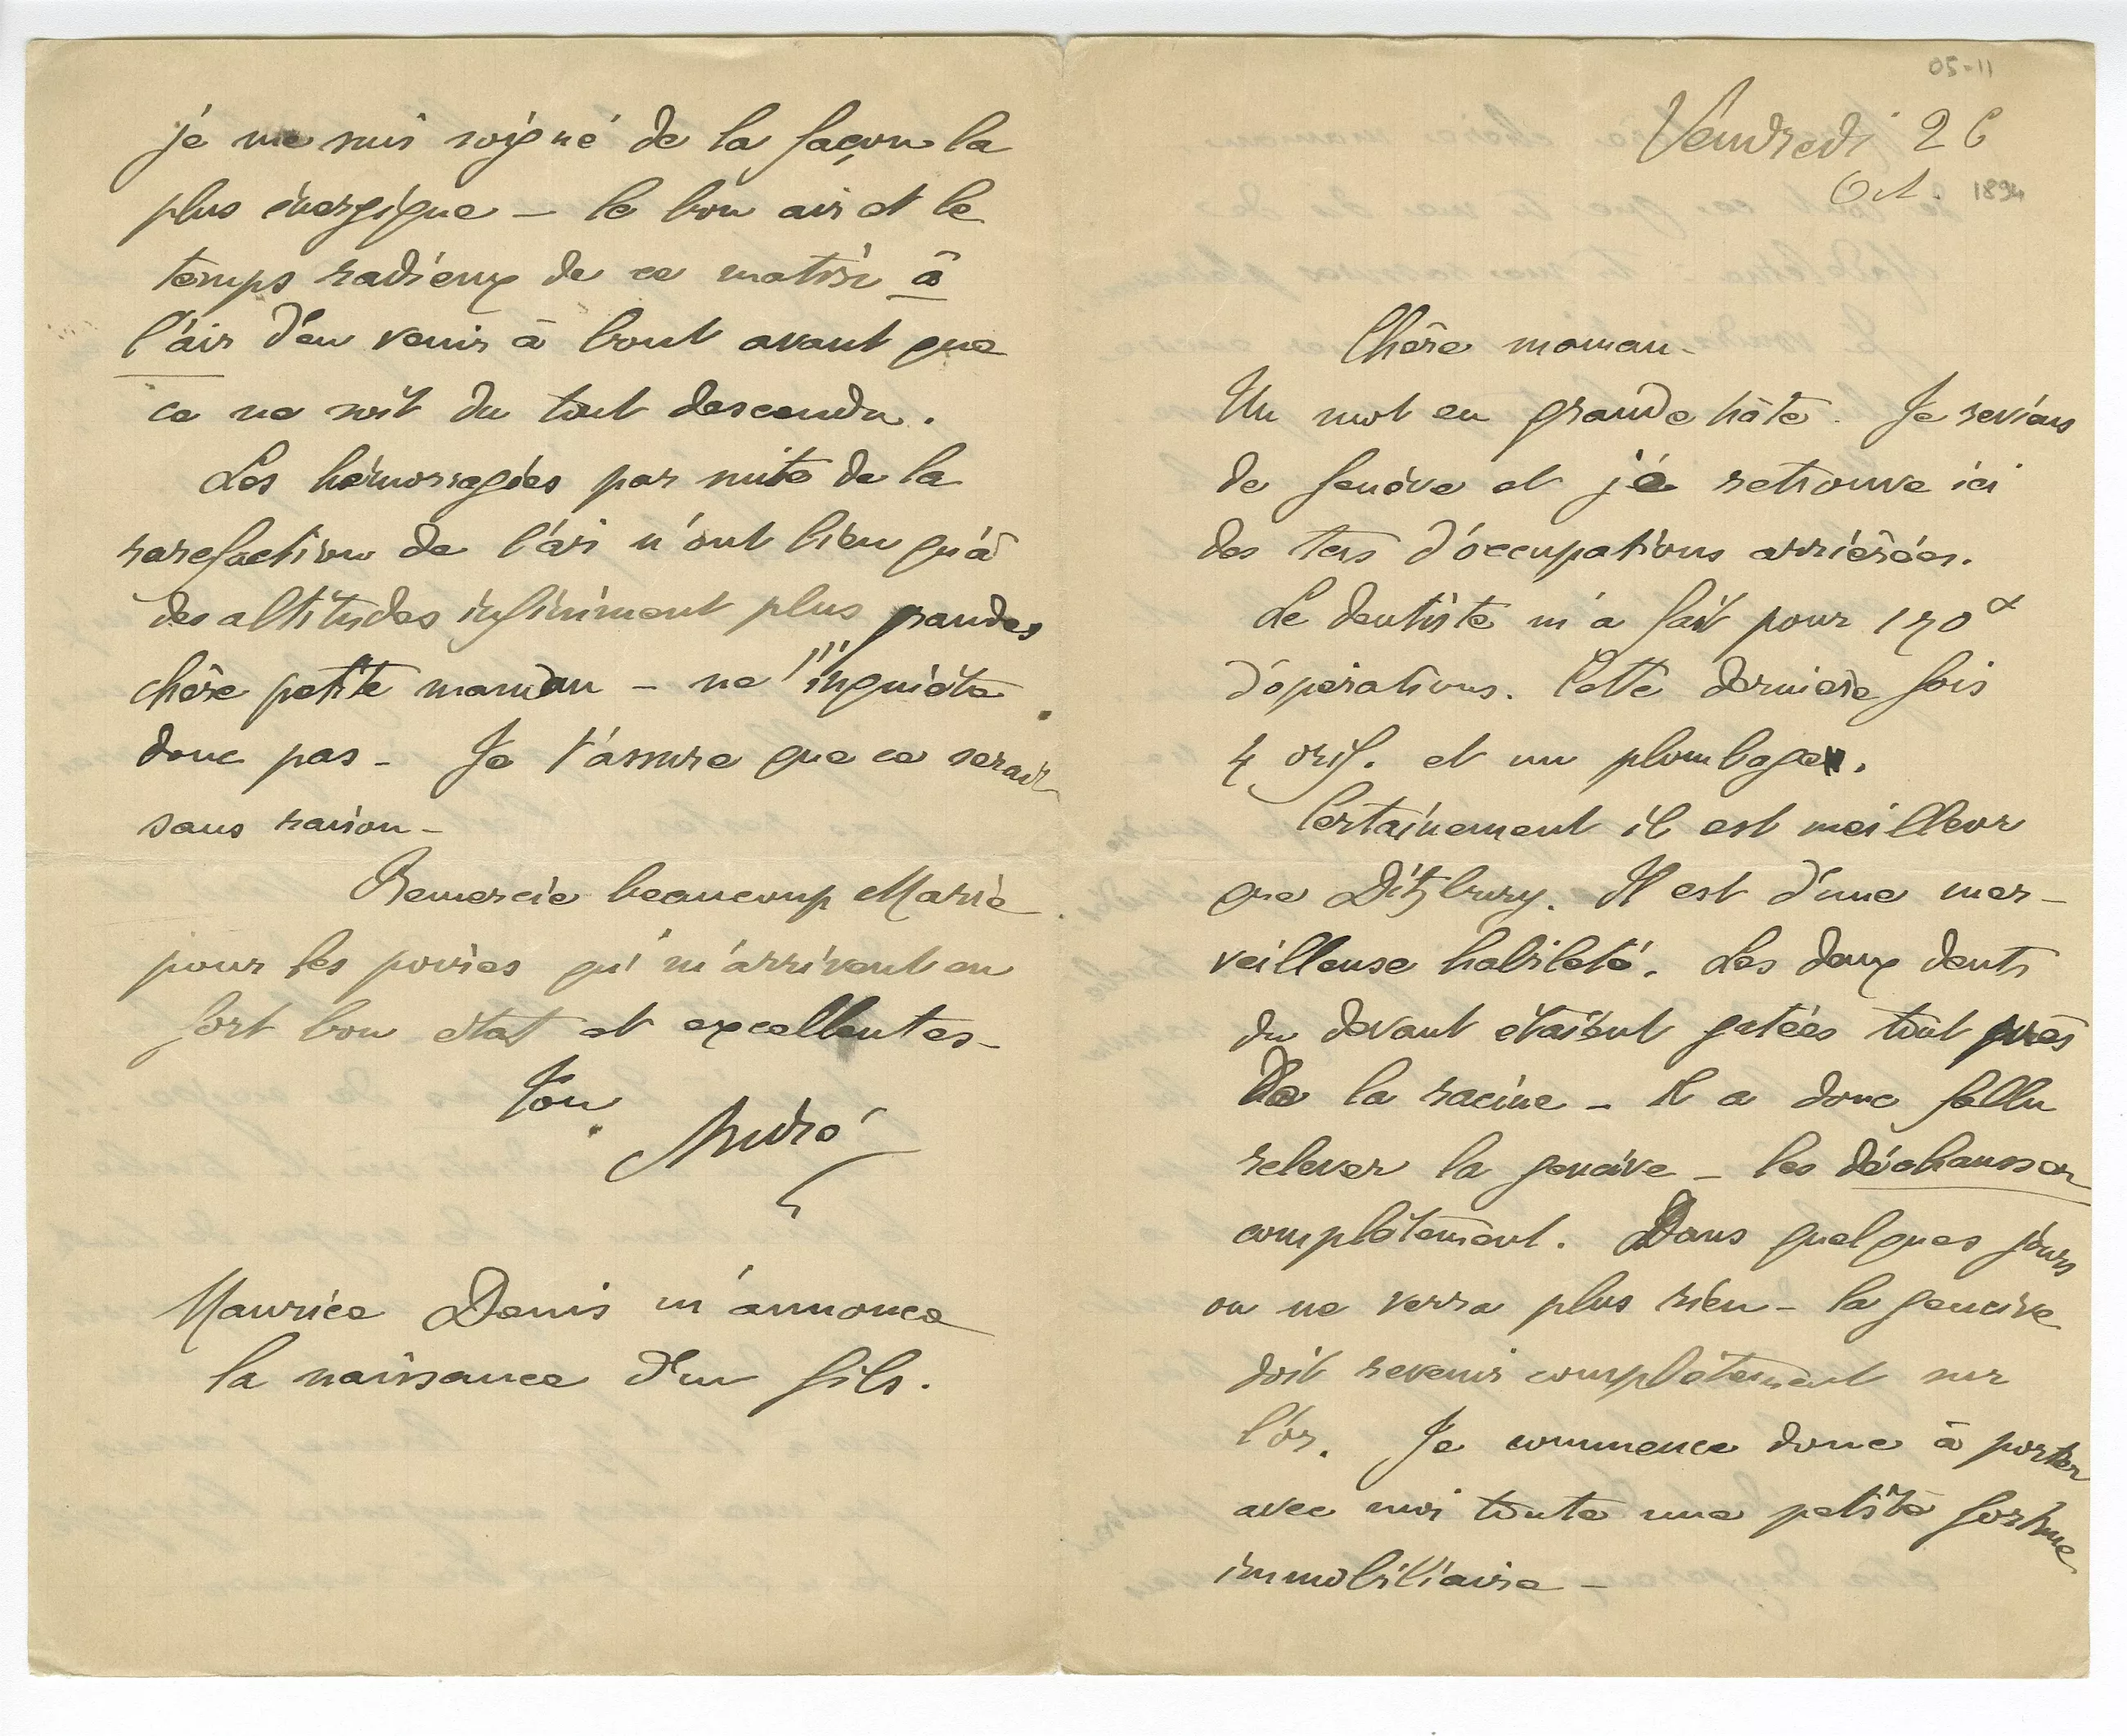 05-11
Vendredi 26
Oct. 1894
Chère maman -
Un mot en grande hâte. Je reviens
de Genève et je retrouve ici
des tas d'occupations arriérées.
Le dentiste m'a fait pour 170 f
d'opérations. Cette dernière fois
4 orif. et un plombage.
Certainement il est meilleur
que Ditzbury. Il est d'une mer-
veilleuse habileté. Les deux dents
du devant étaient gatées tout près
de la racine - Il a donc fallu
relever la gencive - les déchausser
complètement. Dans quelques jours
on ne verra plus rien - la gencive
doit revenir complètement sur
l'or. Je commence donc à porter
avec moi toute une petite fortune
immobiliaire -
je me suis soigné de la façon la
plus énergique - le bon air et le
temps radieux de ce matin a
l'air d'en venir à bout avant que
ce ne soit du tout descendu.
Les hémorragies par suite de la
rarefaction de l'air n'ont lieu qu'à
des altitudes infiniment plus grandes
chère petite maman - ne t'inquiète
donc pas - Je t'assure que ce serait
sans raison -
Remercie beaucoup Marie
pour les poires qui m'arrivent en
fort bon état et excellentes -
Ton
André
Maurice Denis m'annonce
la naissance d'un fils.